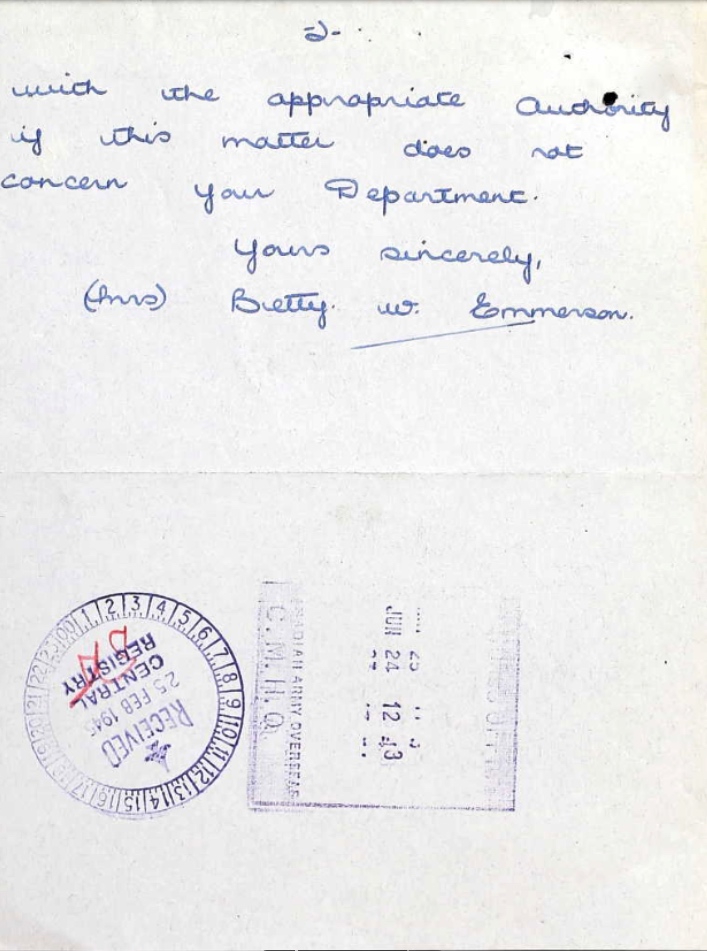 2-
with the appropriate Authority
if this matter does not
concern your Department.
Yours sincerely,
(Mrs) Betty. W. Emmerson.
00 1 2 3 4 5 6 7 8 9 10 11 12 13 14 15 16 17 18 19 20 21 22 23
RECEIVED
25 FEB 1945
CENTRAL
REGISTRY
ARMY OVERSEAS
C.M.H.Q.
JUN 24 12